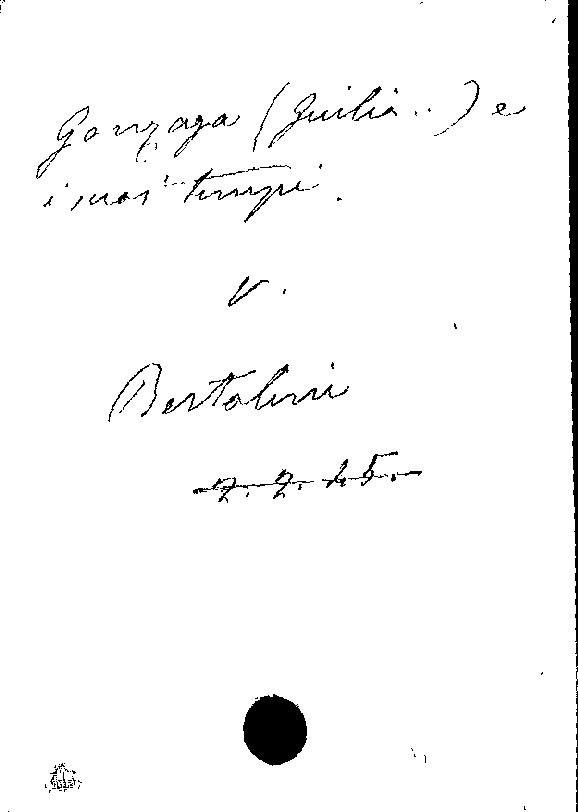 Gonzaga (Giulia ..) e
i suoi tempi.
V.
Bertolini
7. 7. 25.